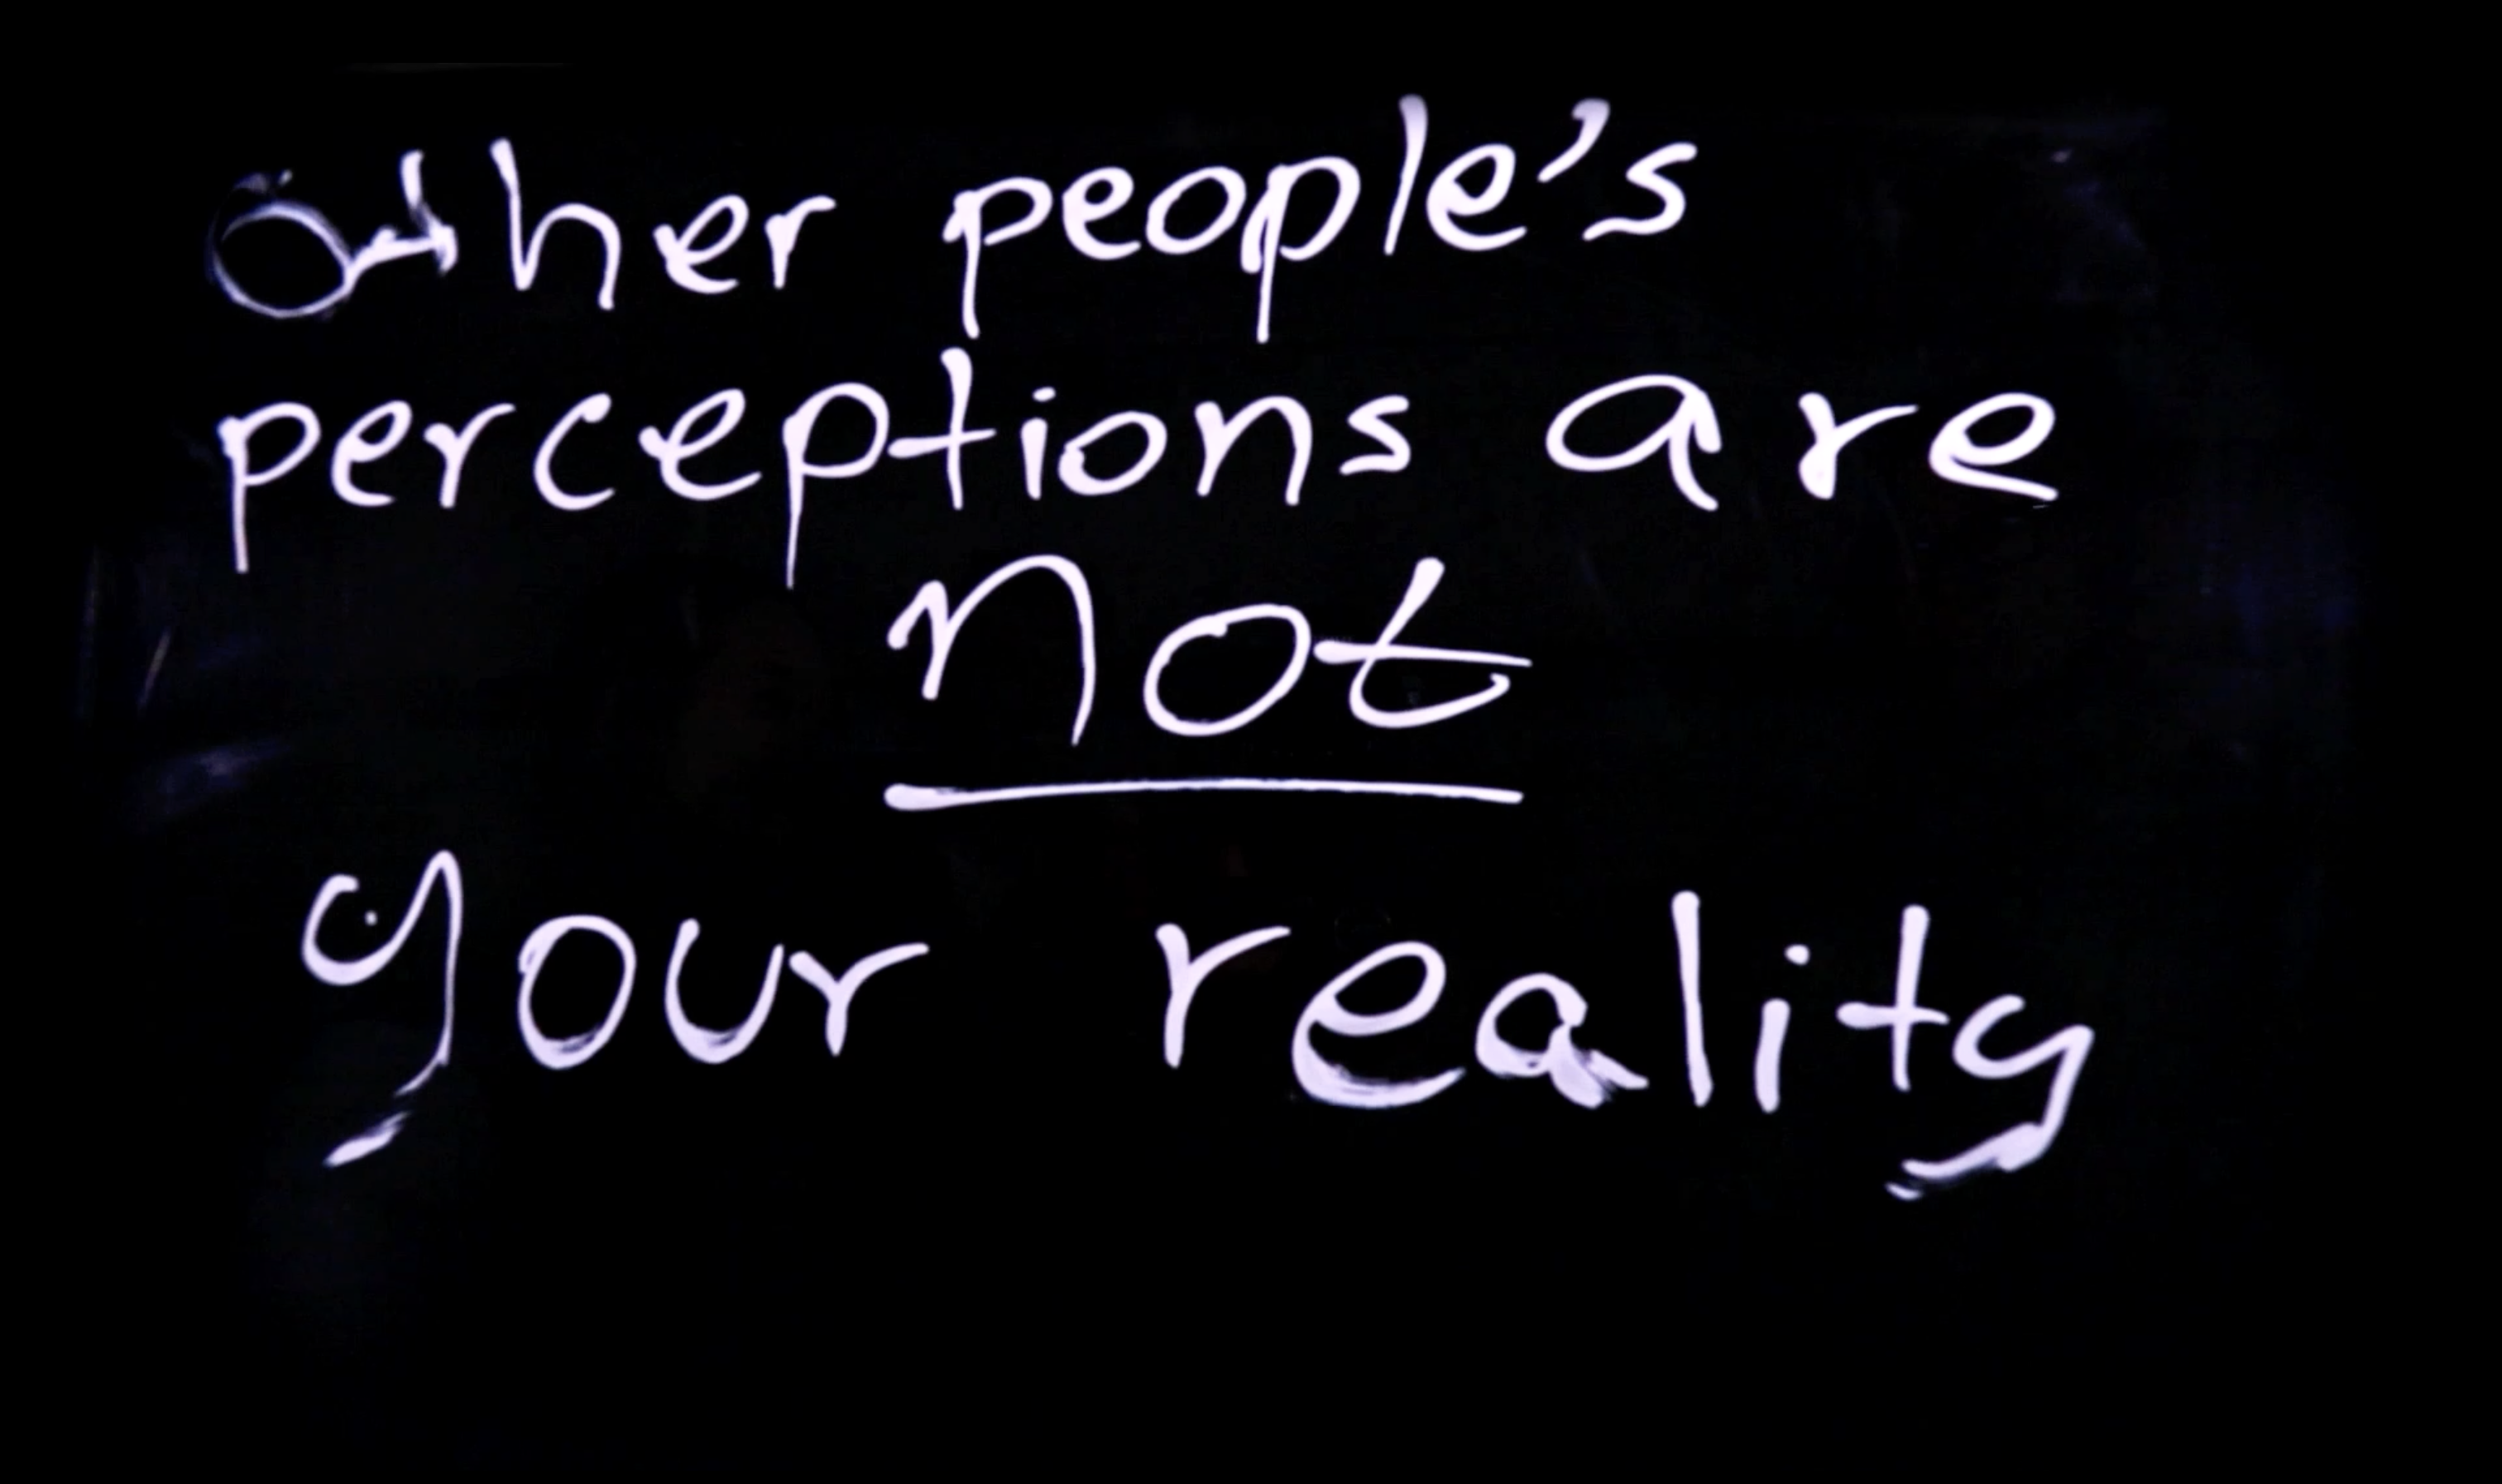 Other people's
perceptions are
not
your reality